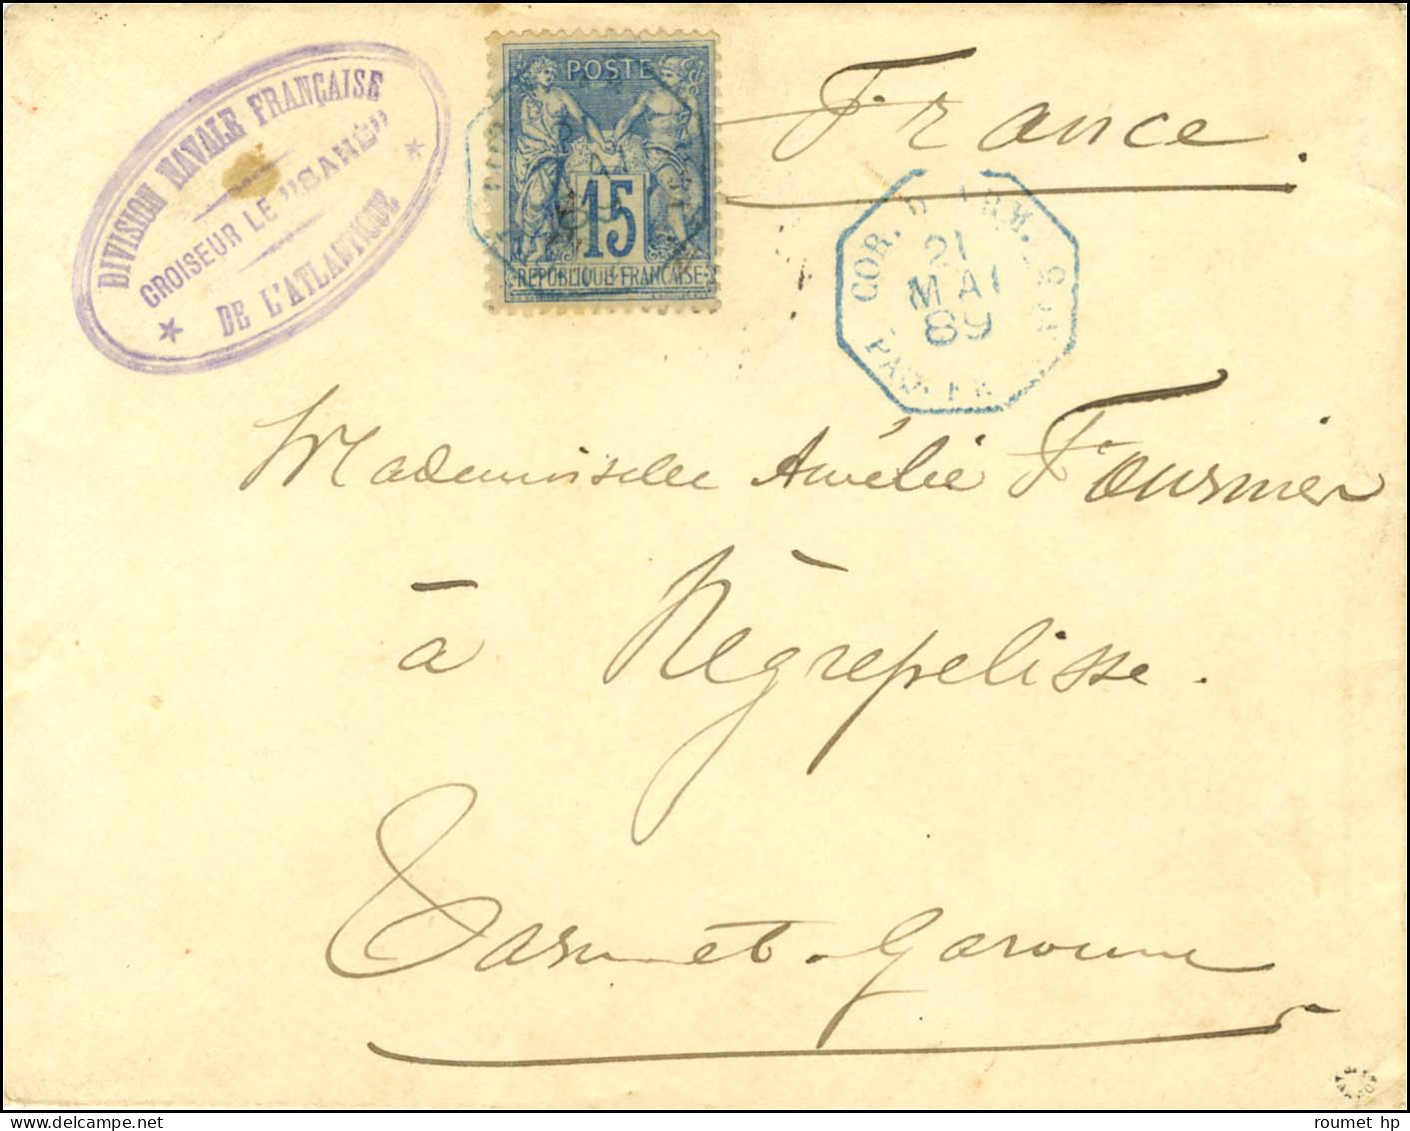 DIVISION NAVALE FRANÇAISE
CROISEUR LE "SANÉ"
DE L'ATLANTIQUE
POSTE
15
REPUBLIQUE FRANCAISE
France.
COR. D. ARM.
21
MAI
89
PAQ. FR.
Mademoiselle Amélie Fournier
à Nègrepelisse.
Tarn-et-Garonne
roumet hp